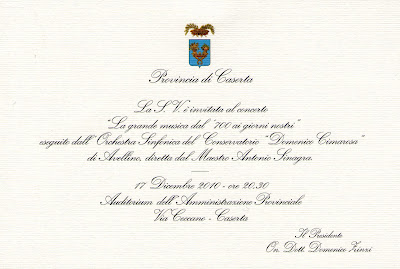 Provincia di Caserta
La S.V. è invitata al concerto
"La grande musica dal '700 ai giorni nostri"
eseguito dall'Orchestra Sinfonica del Conservatorio "Domenico Cimarosa"
di Avellino, diretta dal Maestro Antonio Sinagra.
17 Dicembre 2010 - ore 20.30
Auditorium dell'Amministrazione Provinciale
Via Ceccano - Caserta
Il Presidente
On. Dott. Domenico Zinzi